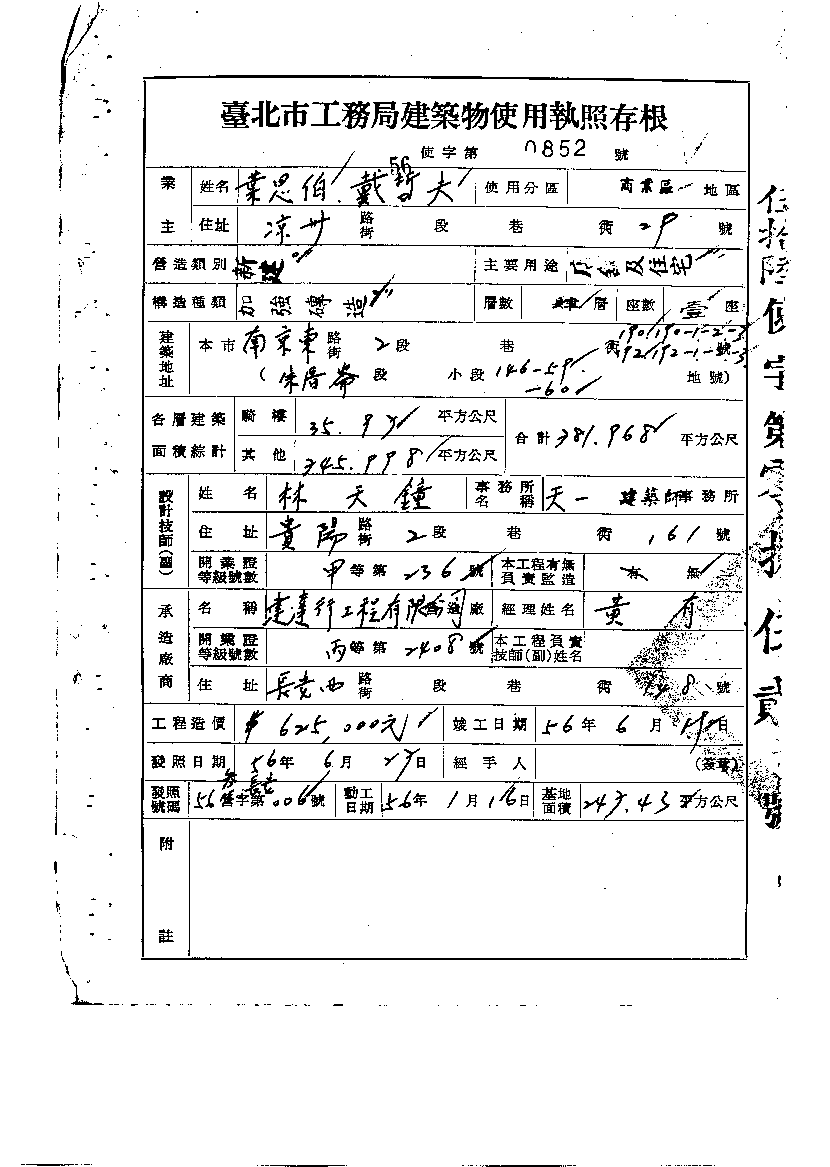 臺北市工務局建築物使用執照存根
56使字第 0852 號
業主 姓名 葉思伯、戴 夫 使用分區 商業區 地區
住址 凉州 路街 段 巷 衖 29 號
營造類別 新建 主要用途 店鋪及住宅
構造種類 加強磚造 層數 層 座數 壹座
建築地址 本市 南京東 路街 2段 巷 衖 190,190-1-2-3 192,192-1-2-3 號
(朱厝崙 段 小段 146-59 -60 地號)
各層建築面積綜計 騎樓 35.97 平方公尺 合計 381.968 平方公尺
其他 345.998 平方公尺
設計技師(副) 姓名 林天鐘 事務所名稱 天一 建築師事務所
住址 貴陽 路街 2段 巷 衖 161 號
開業證等級號數 甲等第 236 號 本工程有無負責監造 有 無
承造廠商 名稱 建達行工程有限公司 廠 經理姓名 黃有
開業證等級號數 丙等第 2408 號 本工程負責技師(副)姓名
住址 長老西 路街 段 巷 衖 148 號
工程造價 $625,000元 竣工日期 56年6月 日
發照日期 56年6月27日 經手人 (簽章)
發照號碼 56營字第006號 動工日期 56年1月16日 基地面積 247.43 平方公尺
附註
伍拾陸使字第零捌伍貳號